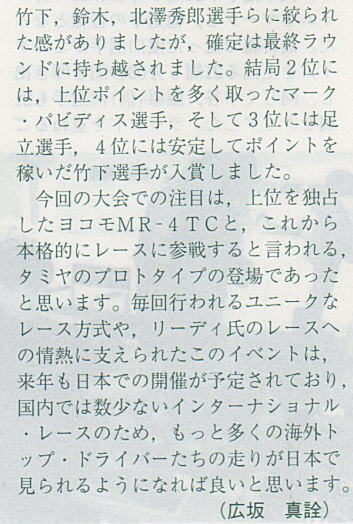 竹下，鈴木，北澤秀郎選手らに絞られ
た感がありましたが，確定は最終ラウ
ンドに持ち越されました。結局２位に
は，上位ポイントを多く取ったマーク
・パビディス選手，そして３位には足
立選手，４位には安定してポイントを
稼いだ竹下選手が入賞しました。
　今回の大会での注目は，上位を独占
したヨコモMR-４TCと，これから
本格的にレースに参戦すると言われる，
タミヤのプロトタイプの登場であった
と思います。毎回行われるユニークな
レース方式や，リーディ氏のレースへ
の情熱に支えられたこのイベントは，
来年も日本での開催が予定されており，
国内では数少ないインターナショナル
・レースのため，もっと多くの海外ト
ップ・ドライバーたちの走りが日本で
見られるようになれば良いと思います。
（広坂　真詮）